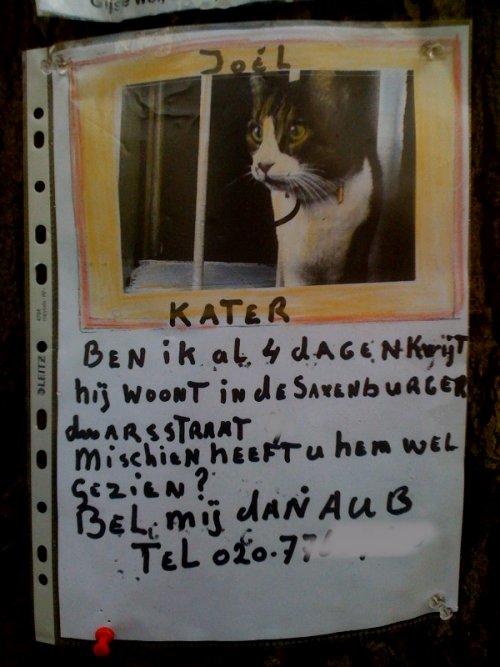 Joël
KATER
BEN ik al 4 dAGEN Kwijt
hij WOONT in de SAXENBURGER
dwARSSTRAAT
MiSCHIEN HEEFT u hEM WEL
GEZIEN?
BEL mij dAN AUB
TEL 020.77
LEITZ